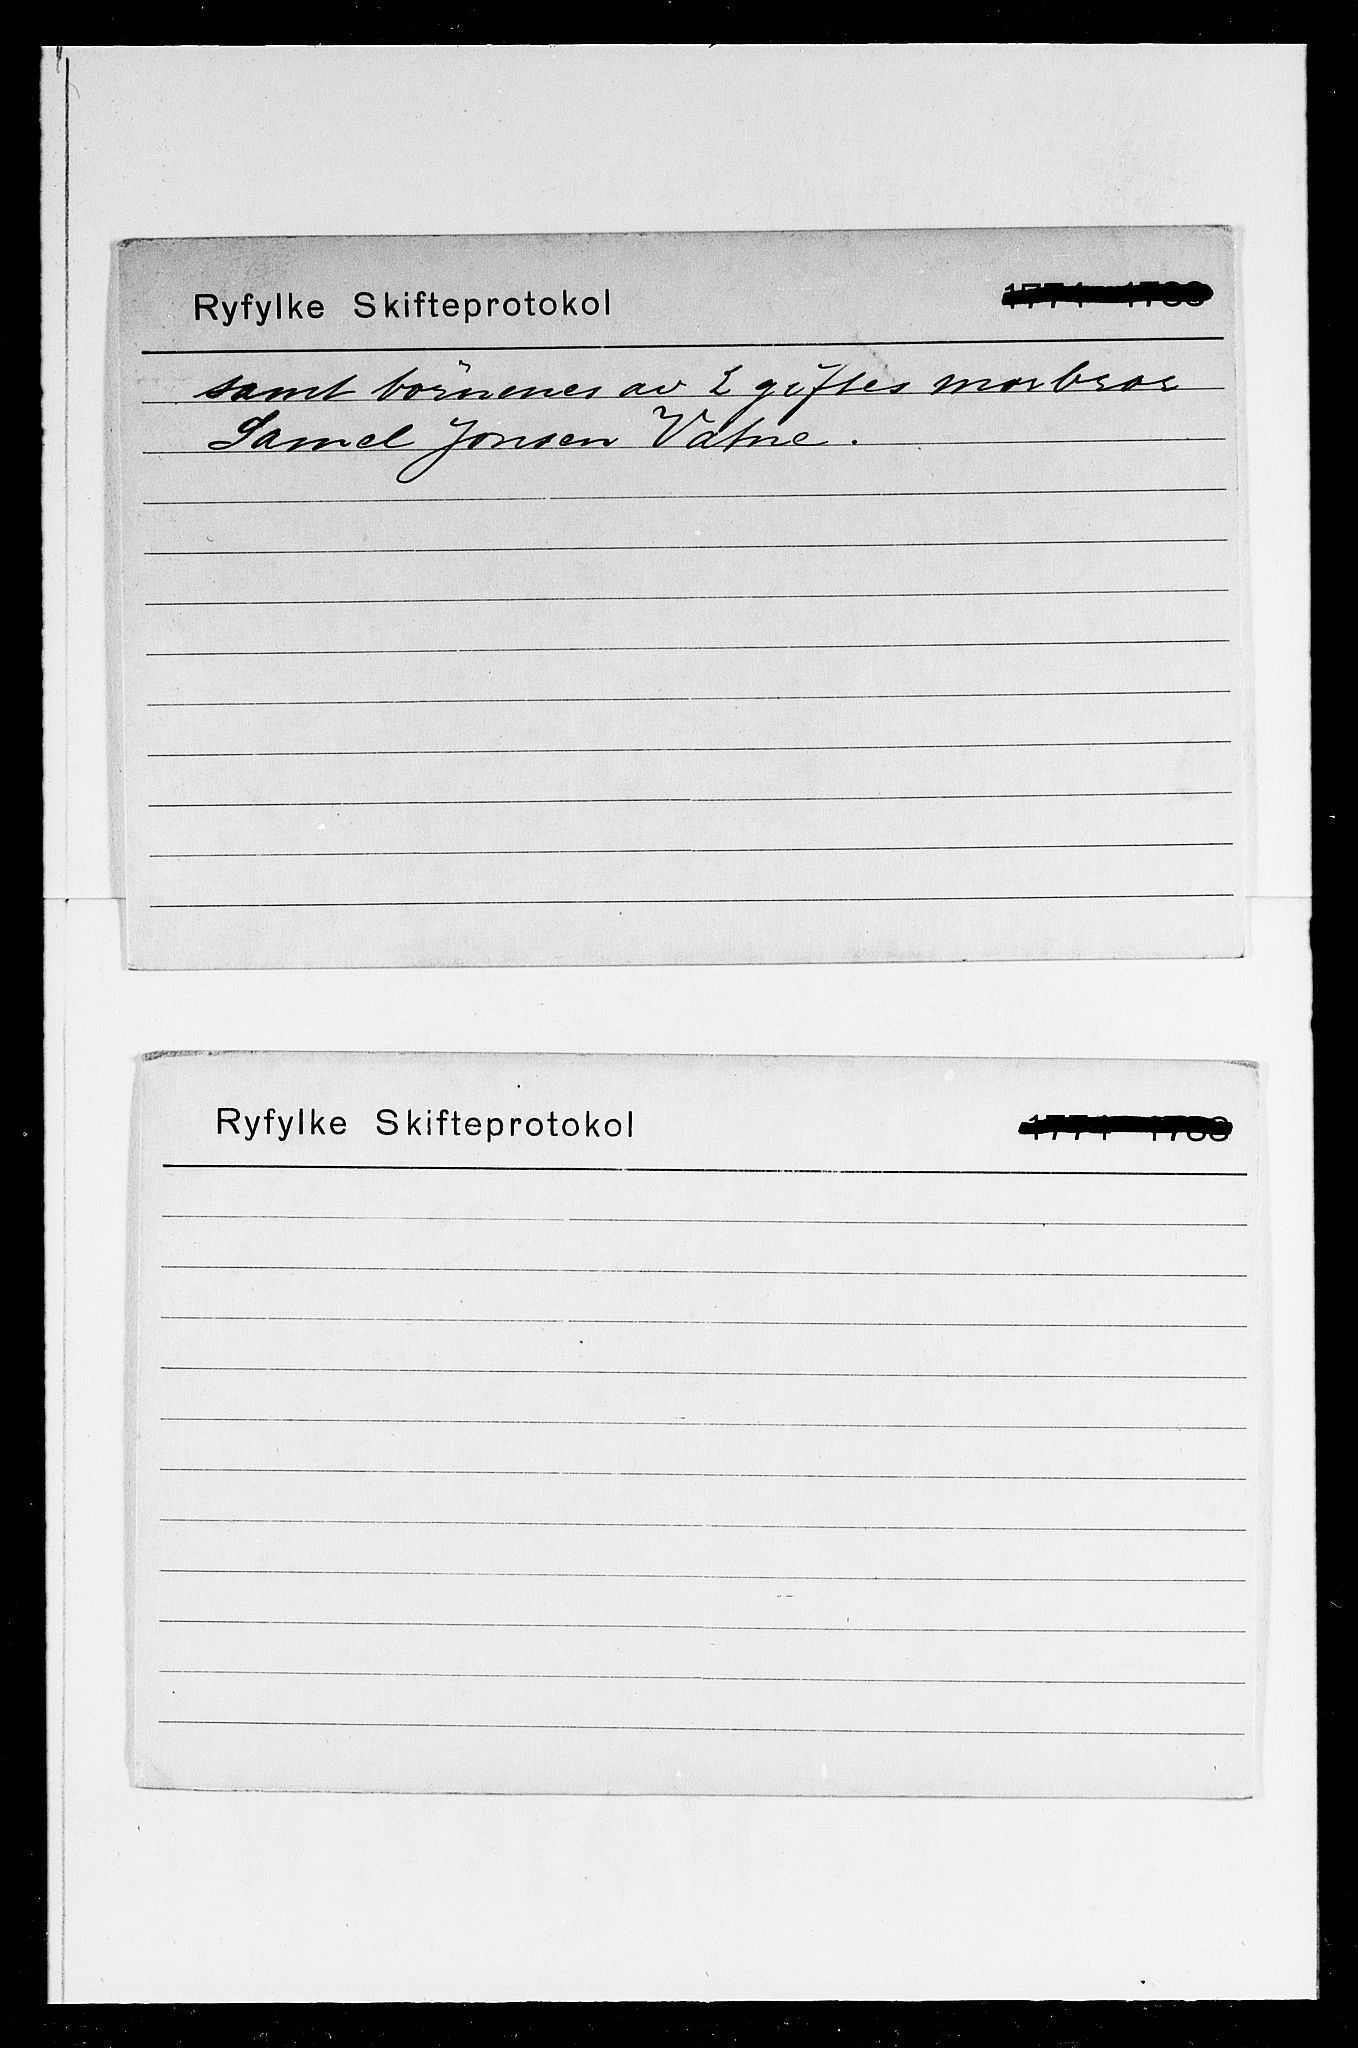 Ryfylke Skifteprotokol 1771–1788
samt börnenes av 2 giftes morbror
Samel Jonsen Vatne.
Ryfylke Skifteprotokol 1771–1788